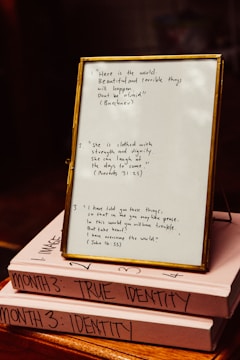 1. "Here is the world.
Beautiful and terrible things
will happen.
Dont be afraid"
(Buechner)
2. "She is clothed with
strength and dignity
She can laugh at
the days to come."
(Proverbs 31:25)
3. "I have told you these things,
so that in me you may have peace.
In this world you will have trouble.
But take heart!
I have overcome the world"
(John 16:33)
MONTH 3: TRUE IDENTITY
MONTH 3: IDENTITY